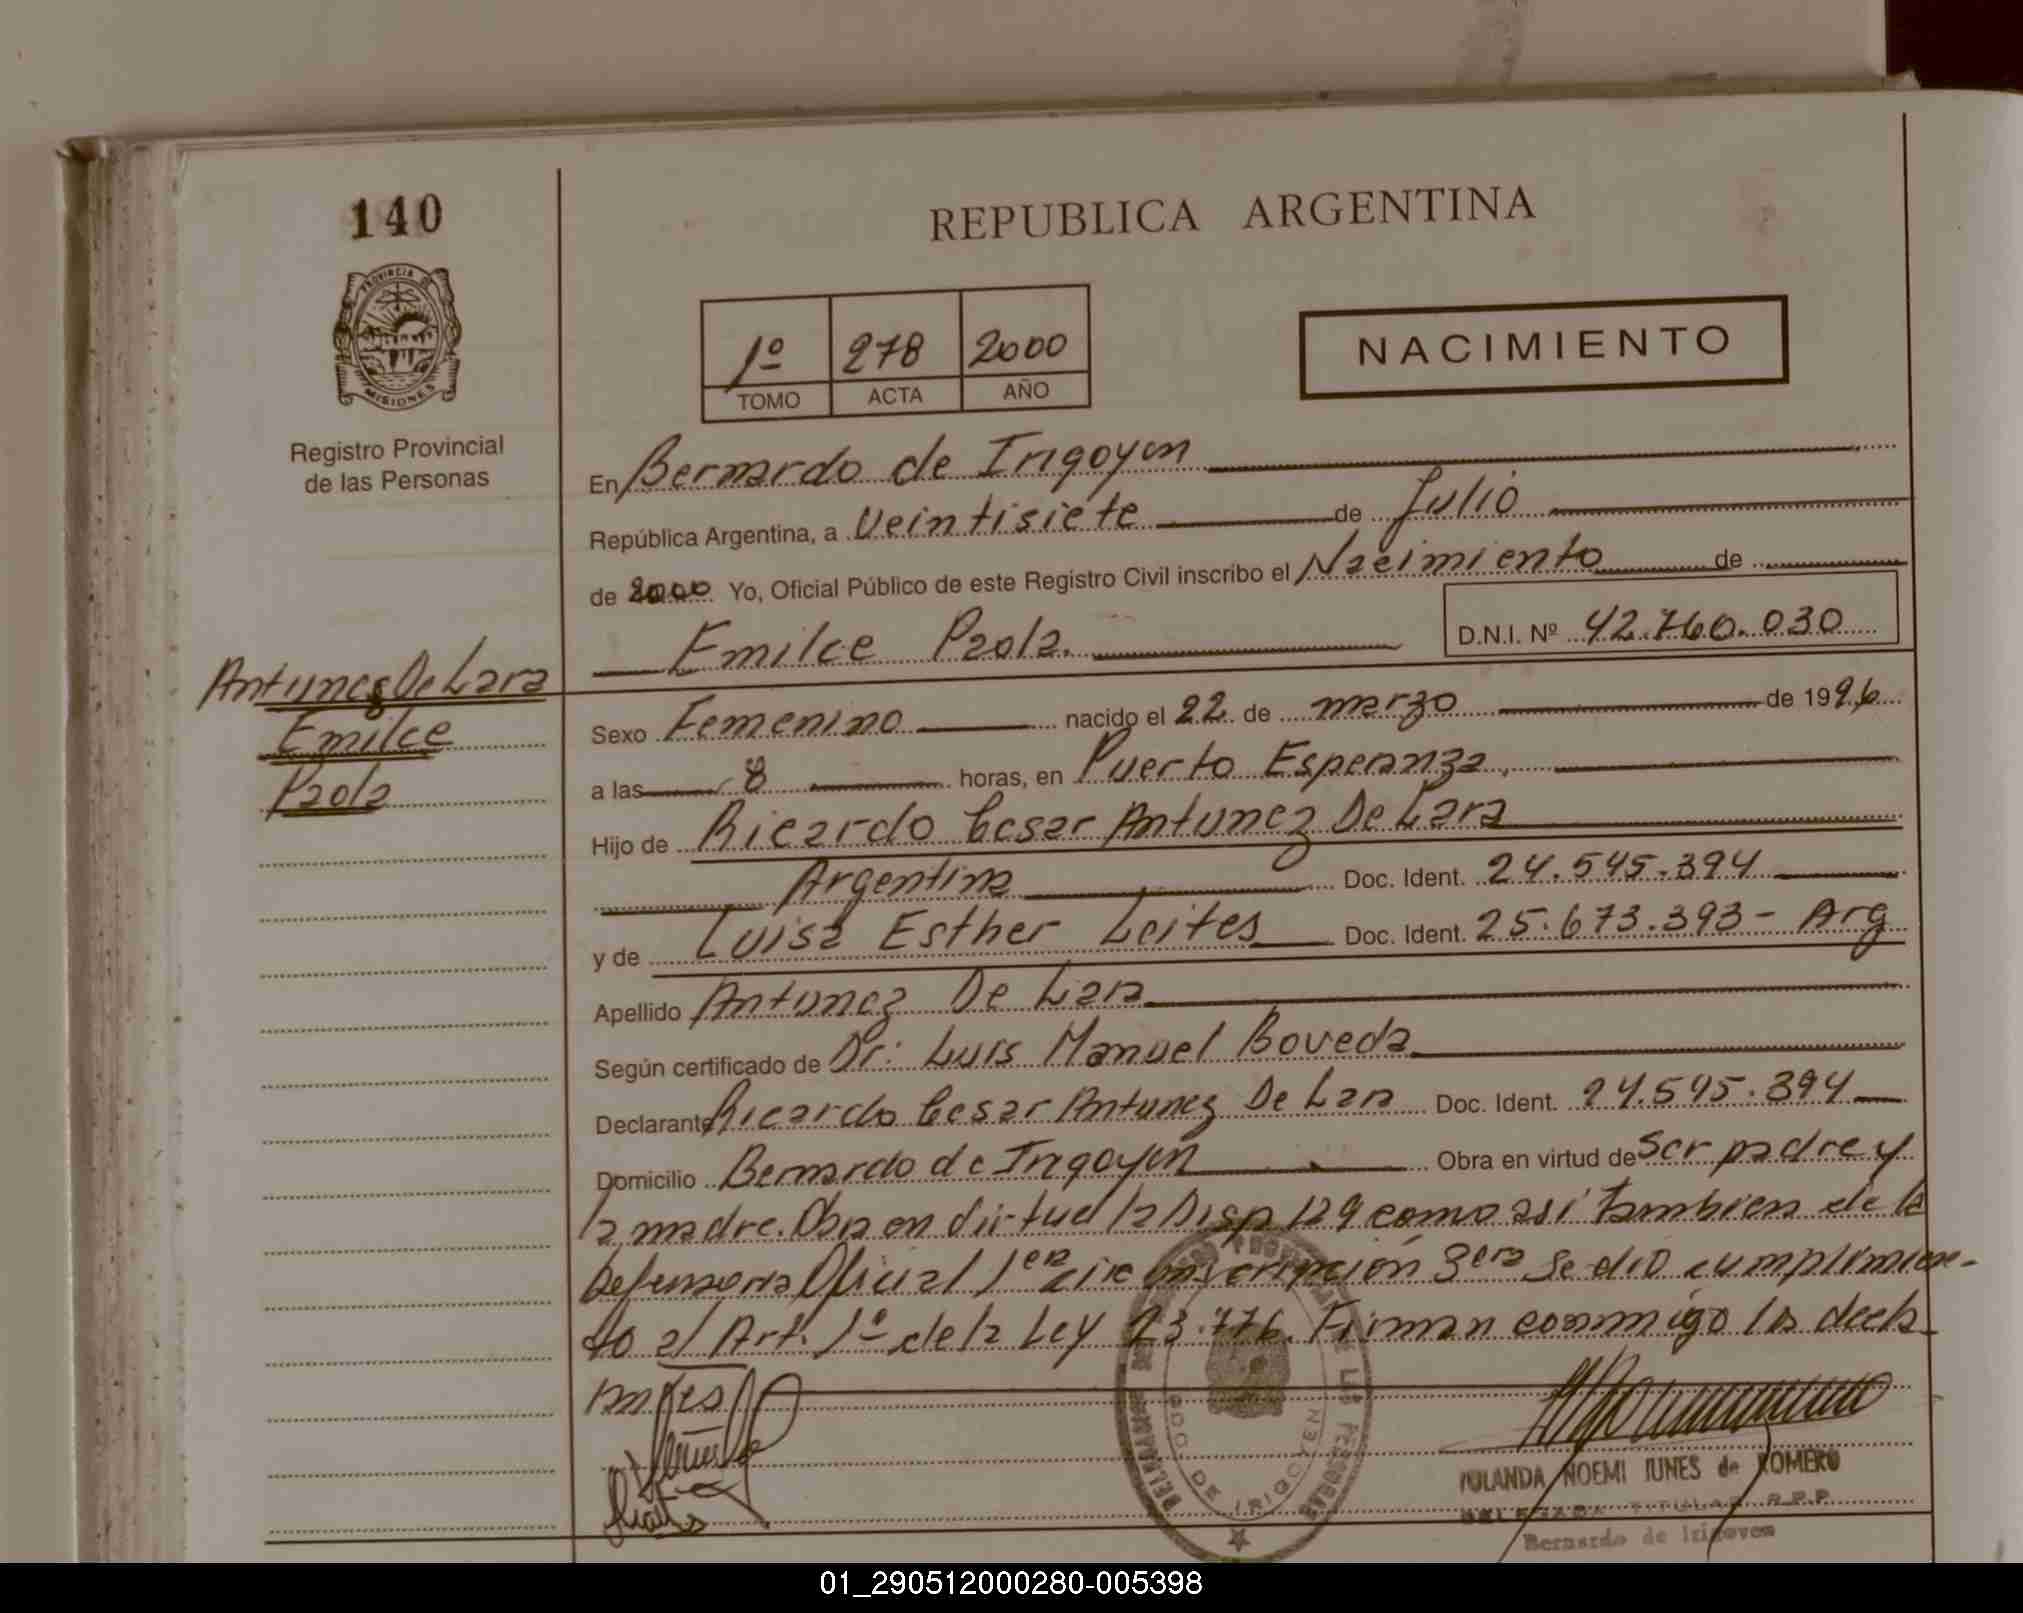 140
REPUBLICA ARGENTINA
PROVINCIA DE
MISIONES
Registro Provincial
de las Personas
1º 278 2000
TOMO ACTA AÑO
NACIMIENTO
En Bernardo de Irigoyen
República Argentina, a Veintisiete de Julio
de 2000 Yo, Oficial Público de este Registro Civil inscribo el Nacimiento de
Emilce Paola. D.N.I. Nº 42.760.030
Antunez De Lara
Emilce
Paola
Sexo Femenino nacido el 22 de marzo de 1996
a las 8 horas, en Puerto Esperanza,
Hijo de Ricardo Cesar Antunez De Lara
Argentina Doc. Ident. 24.545.394
y de Luisa Esther Leites Doc. Ident. 25.673.393 - Arg
Apellido Antunez De Lara
Según certificado de Dr: Luis Manuel Boveda
Declarante Ricardo Cesar Antunez De Lara Doc. Ident. 24.545.394
Domicilio Bernardo de Irigoyen Obra en virtud de Ser padre y
la madre. Obra en virtud la Disp 129 como asi tambien de la
Defensoria Oficial 1era circunscripción 3era Se dió cumplimien-
to al Art. 1º de la Ley 23.776. Firman conmigo los decla-
rantes
BDO. DE IRIGOYEN
YOLANDA NOEMI IUNES de ROMERO
DELEGADA TITULAR R.P.P.
Bernardo de Irigoyen
01_290512000280-005398